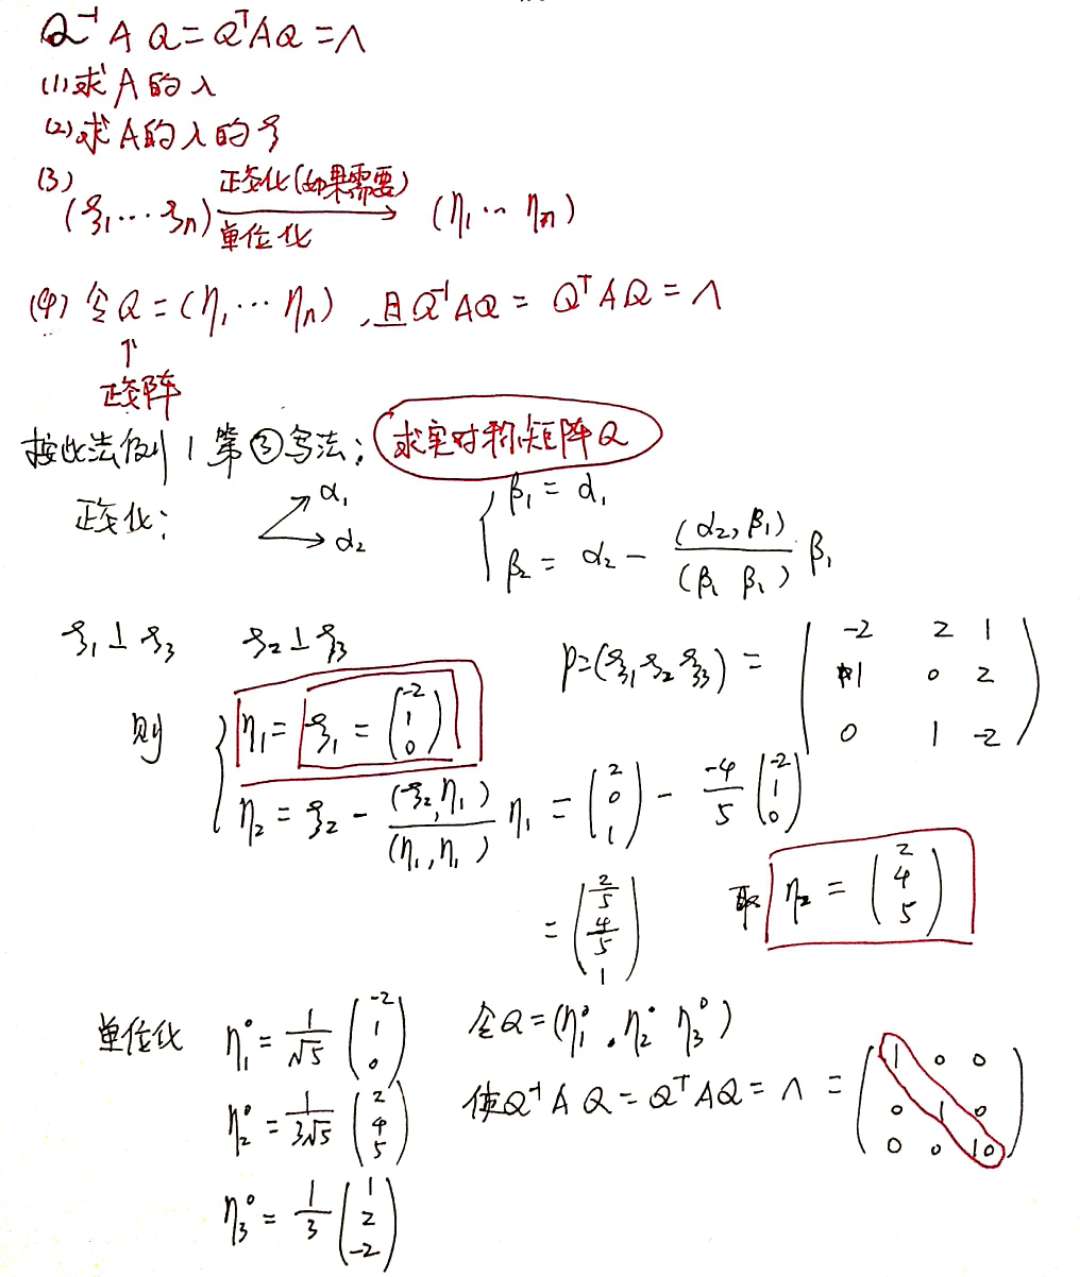 Q⁻¹AQ=QᵀAQ=Λ
(1)求A的λ
(2)求A的λ的ξ
(3)
(ξ₁…ξₙ) 正交化(如果需要) 单位化 → (η₁…ηₙ)
(4)令Q=(η₁…ηₙ),且Q⁻¹AQ=QᵀAQ=Λ
↑
正交阵
按此法例1第③写法: 求实对称矩阵Q
正交化: α₁ α₂ { β₁=α₁
β₂=α₂-(α₂,β₁)/(β₁ β₁) β₁
ξ₁⊥ξ₃ ξ₂⊥ξ₃ P=(ξ₁ξ₂ξ₃)=
-2 2 1
1 0 2
0 1 -2
则 { η₁=ξ₁=(-2 1 0)
η₂=ξ₂-(ξ₂,η₁)/(η₁,η₁) η₁=(2 0 1)-(-4/5)(-2 1 0)
=(2/5 4/5 1) 取 η₂=(2 4 5)
单位化 η₁⁰=1/√5(-2 1 0) 令Q=(η₁⁰.η₂⁰ η₃⁰)
η₂⁰=1/3√5(2 4 5) 使Q⁻¹AQ=QᵀAQ=Λ=
1 0 0
0 1 0
0 0 10
η₃⁰=1/3(1 2 -2)